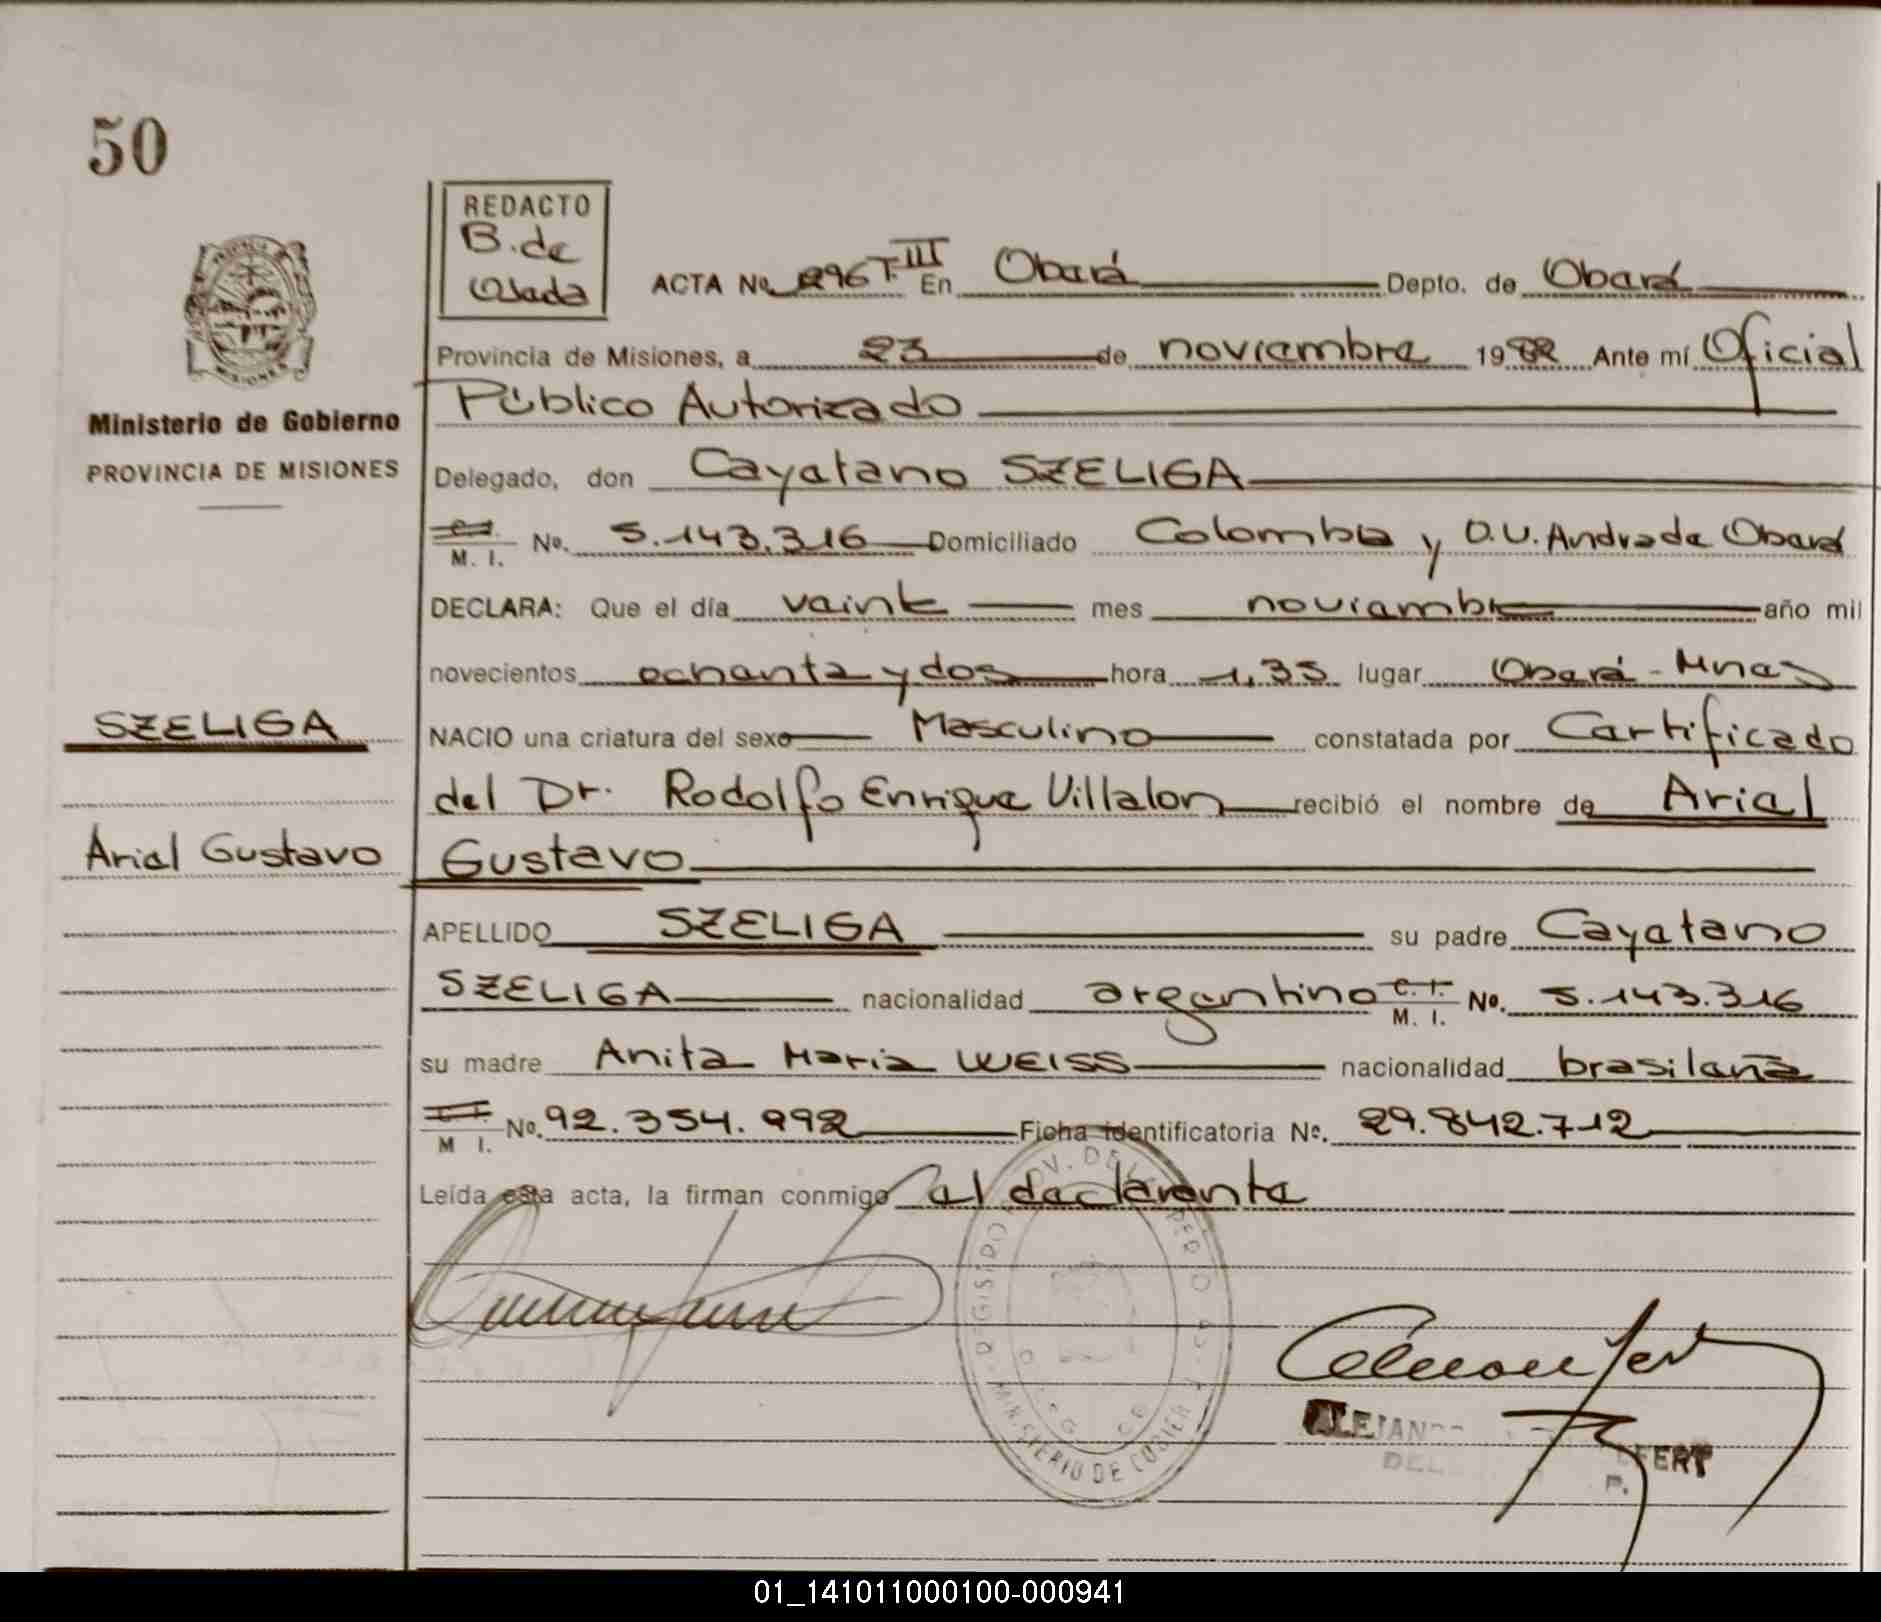 50
REDACTO
B. de
Osada
ACTA No. 296 T. III En Oberá Depto. de Oberá
Provincia de Misiones, a 23 de noviembre 1982 Ante mí Oficial
Público Autorizado
Ministerio de Gobierno
PROVINCIA DE MISIONES
Delegado, don Cayetano SZELIGA
C.I.
M. I. No. 5.143.316 Domiciliado Colombia y O.V. Andrade Oberá
DECLARA: Que el día veinte mes noviembre año mil
novecientos ochenta y dos hora 1,35 lugar Oberá - Mnes
SZELIGA
NACIO una criatura del sexo Masculino constatada por Certificado
del Dr. Rodolfo Enrique Villalon recibió el nombre de Ariel
Ariel Gustavo
Gustavo
APELLIDO SZELIGA su padre Cayetano
SZELIGA nacionalidad argentino C.I. M. I. No. 5.143.316
su madre Anita Maria WEISS nacionalidad brasileña
M I. No. 92.354.992 Ficha identificatoria No. 29.842.712
Leída esta acta, la firman conmigo el declarante
REGISTRO PROV. DE LAS PERSONAS
MINISTERIO DE GOBIERNO
01_141011000100-000941